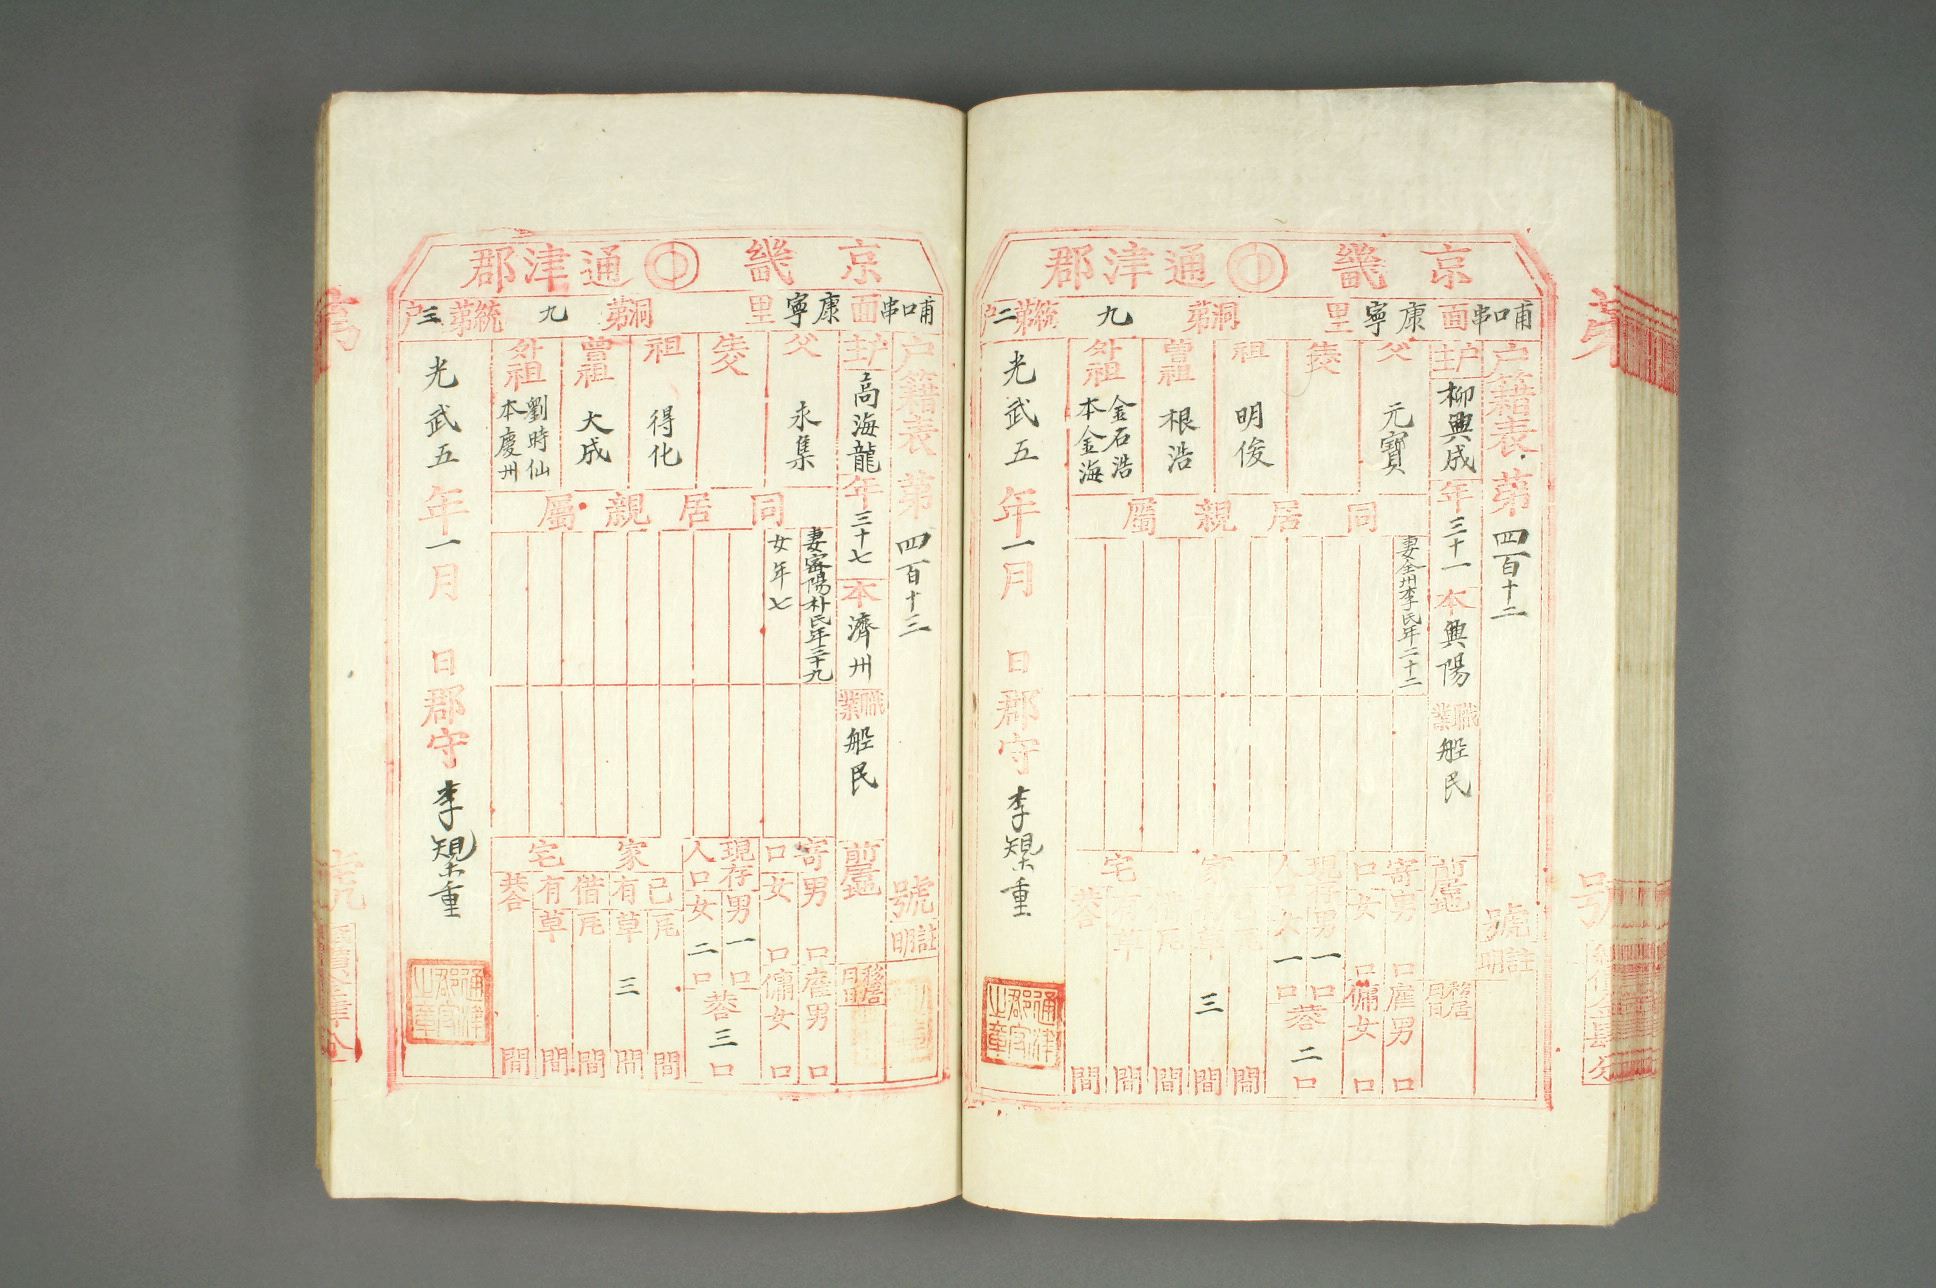 京畿 通津郡
哺口串面 康寧里 洞第 九 統第二戶
戶籍表 第 四百十二 號
註明
戶主 柳興成 年 三十一 本 興陽 職業 船民 前居地 移居月日
父 元寶
生父
祖 明俊
曾祖 根浩
外祖 金石浩 本金海
同居親屬
妻全州李氏年二十二
寄口 男 口 雇男 口
女 口 傭女 口
現存人口 男 一 口 女 一 口 共 二 口
家宅
間
草 三 間
間
有草 間
共合 間
光武五年一月 日 郡守 李
重
通津郡守之章
號
京畿 通津郡
哺口串面 康寧里 洞第 九 統第三戶
戶籍表 第 四百十三 號
註明
戶主 高海龍 年 三十七 本 濟州 職業 船民 前居地 移居月日
父 永集
生父
祖 得化
曾祖 大成
外祖 劉時仙 本慶州
同居親屬
妻密陽朴氏年三十九
女年七
寄口 男 口 雇男 口
女 口 傭女 口
現存人口 男 一 口 女 二 口 共 三 口
家宅
己有 瓦 間
草 三 間
借有 瓦 間
草 間
共合 間
光武五年一月 日 郡守 李
重
通津郡守之章